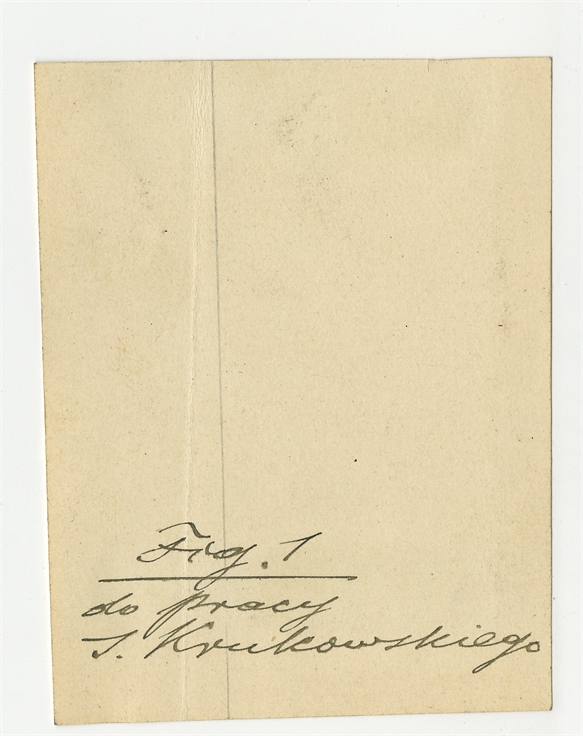 Fig. 1
do pracy
S. Krukowskiego